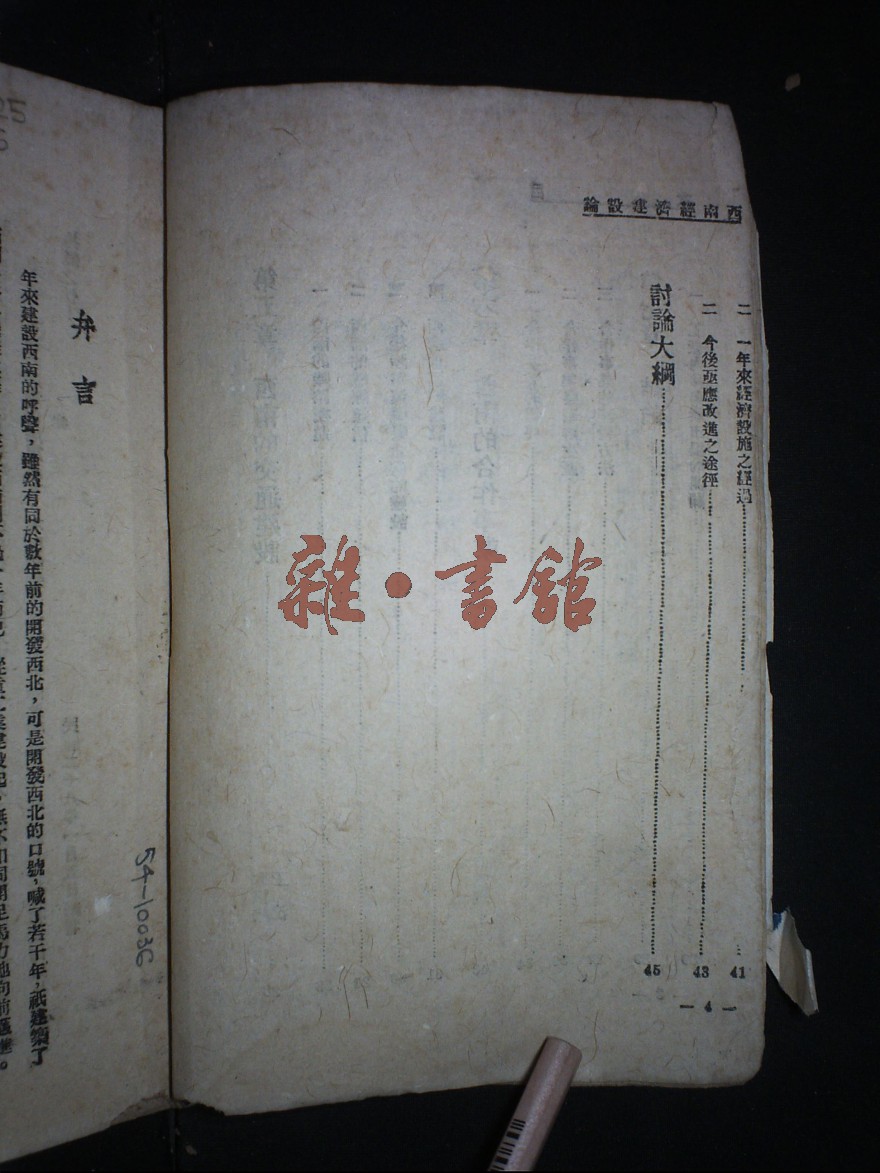 西南經濟建設論
二　一年來經濟設施之經過……41
二　今後亟應改進之途徑……43
討論大綱……45
— 4 —
雜·書館
弁言
年來建設西南的呼聲，雖然有同於數年前的開發西北，可是開發西北的口號，喊了若干年，祇建築了
54-10036
25